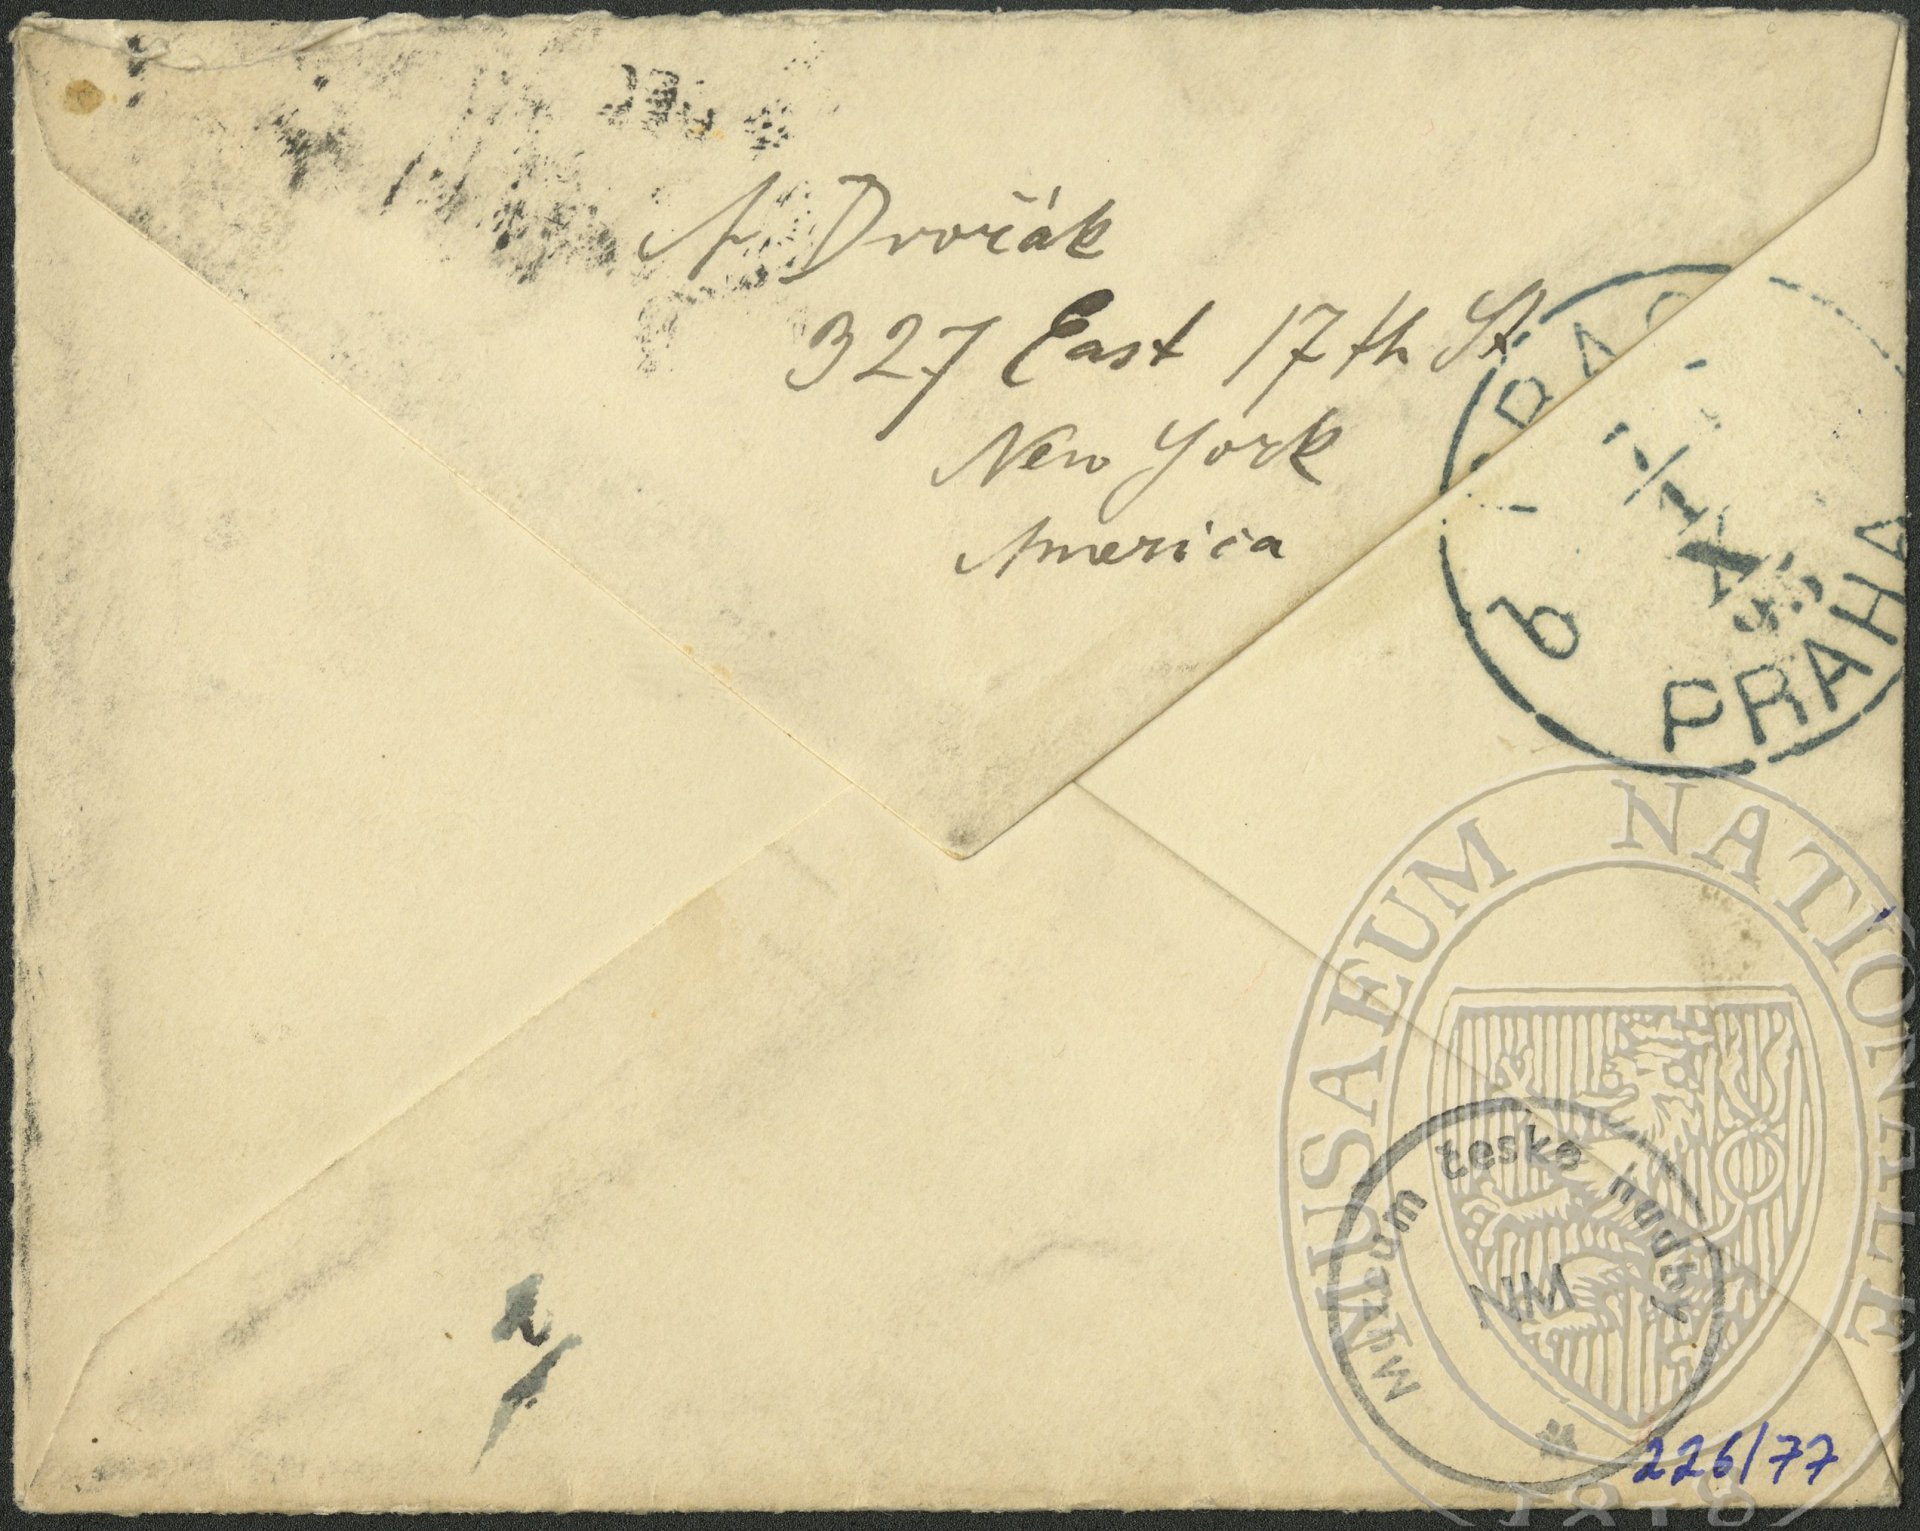 A. Dvořák
327 East 17th St
New York
America
PRAG
PRAHA
b
1/1
MUSAEUM NATIONALE
1818
Muzeum české hudby
NM
226/77